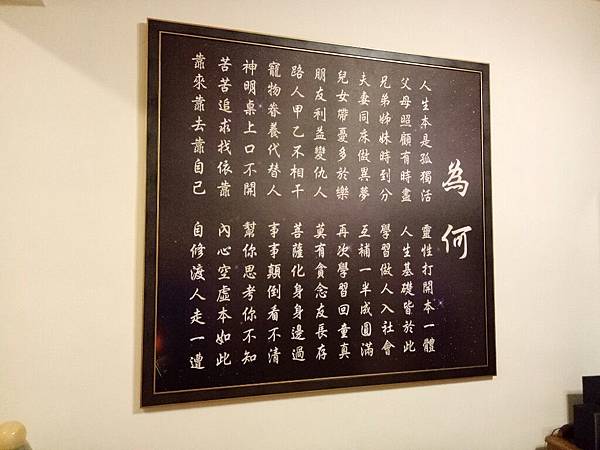 為何
人生本是孤獨活 靈性打開本一體
父母照顧有時盡 人生基礎皆於此
兄弟姊妹時到分 學習做人入社會
夫妻同床做異夢 互補一半成圓滿
兒女帶憂多於樂 再次學習回童真
朋友利益變仇人 莫有貪念友長存
路人甲乙不相干 菩薩化身身邊過
寵物眷養代替人 事事顛倒看不清
神明桌上口不開 幫你思考你不知
苦苦追求找依靠 內心空虛本如此
靠來靠去靠自己 自修渡人走一遭